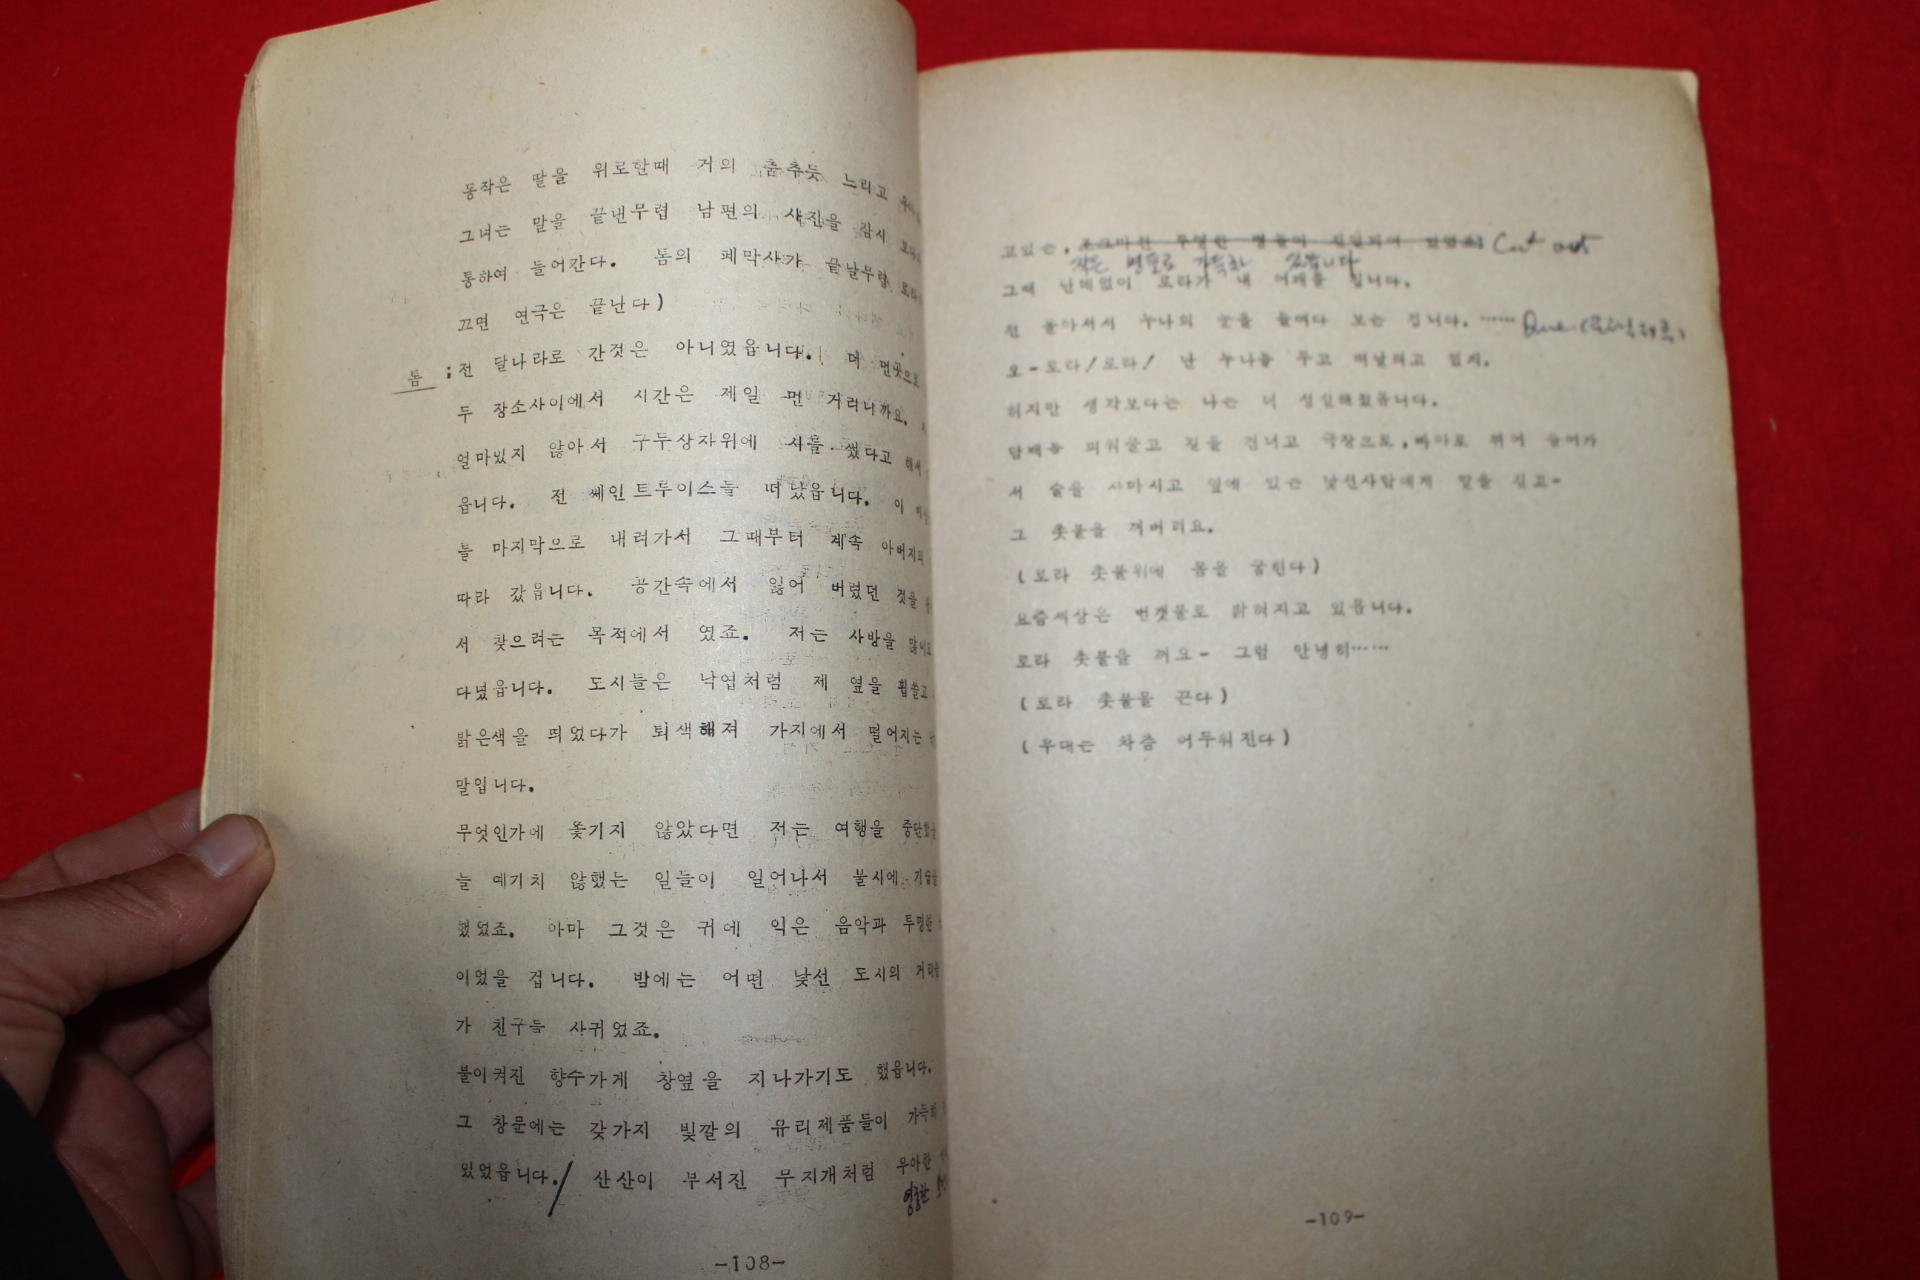 동작은 딸을 위로할때 거의 춤추듯 느리고
그녀는 말을 끝낸무렵 남편의 사진을 잠시
통하여 들어간다. 톰의 폐막사가 끝날무렵
끄면 연극은 끝난다)
톰 ; 전 달나라로 간것은 아니였읍니다. 더 먼곳으로
두 장소사이에서 시간은 제일 먼 거리니까요.
얼마있지 않아서 구두상자위에 시를 썼다고 해서
읍니다. 전 쎄인트루이스를 떠났읍니다. 이
를 마지막으로 내려가서 그때부터 계속 아버지의
따라 갔읍니다. 공간속에서 잃어 버렸던 것을
서 찾으려는 목적에서 였죠. 저는 사방을
다녔읍니다. 도시들은 낙엽처럼 제 옆을 휩쓸고
밝은색을 띄었다가 퇴색해져 가지에서 떨어지는
말입니다.
무엇인가에 쫓기지 않았다면 저는 여행을
늘 예기치 않했는 일들이 일어나서 불시에
했었죠. 아마 그것은 귀에 익은 음악과 투명한
이었을 겁니다. 밤에는 어떤 낯선 도시의 거리를
가 친구를 사귀었죠.
불이켜진 향수가게 창옆을 지나가기도 했읍니다.
그 창문에는 갖가지 빛깔의 유리제품들이
있었읍니다./ 산산이 부서진 무지개처럼 우아한
영롱한
-108-
고있는, Cut out
작은 병들로 가득찬 있읍니다
그때 난데없이 로라가 내 어깨를 칩니다.
전 돌아서서 누나의 눈을 들여다 보는 겁니다. ……
오-로라/로라/ 난 누나를 두고 떠날려고 했지.
허지만 생각보다는 나는 더 성실해졌읍니다.
담배를 피워물고 길을 건너고 극장으로, 빠아로 뛰어 들어가
서 술을 사마시고 옆에 있는 낯선사람에게 말을 걸고-
그 촛불을 꺼버려요.
(로라 촛불위에 몸을 굽힌다)
요즘세상은 번갯불로 밝혀지고 있읍니다.
로라 촛불을 꺼요- 그럼 안녕히……
(로라 촛불을 끈다)
(무대는 차츰 어두워진다)
-109-